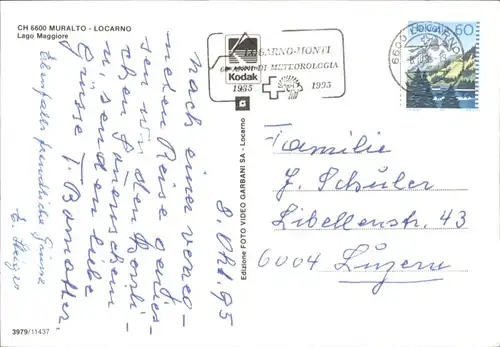 CH 6600 MURALTO - LOCARNO
Lago Maggiore
8. Okt. 95
Nach einer
neden Reise genies-
sen wir den
chen Sonnenschein
u. senden liebe
Grüsse T. Bamatter.
Ebenfalls freundliche Grüsse
E. Steiger
3979/11437
Edizione FOTO VIDEO GARBANI SA - Locarno
Kodak
LOCARNO-MONTI
60 ANNI DI METEOROLOGIA
1935 1995
6600 LOCARNO
60
Familie
J. Schüler
Libellenstr. 43
6004 Luzern